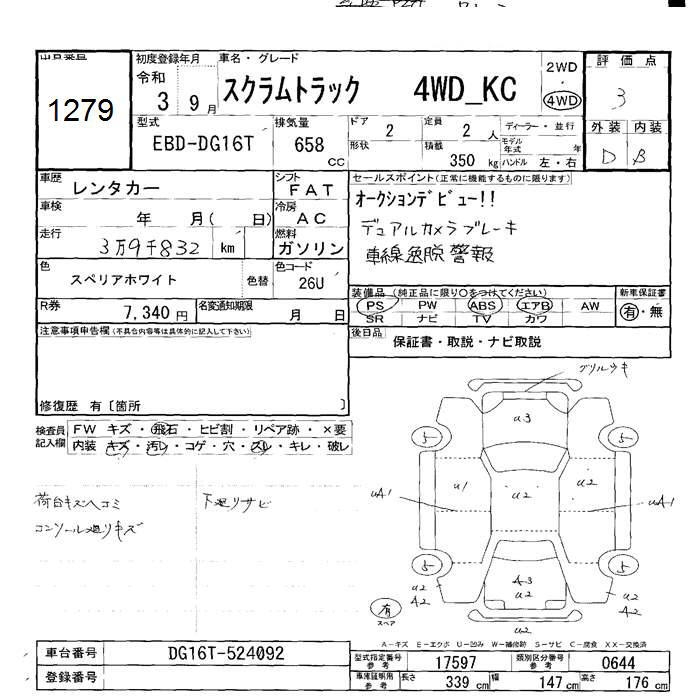 出品番号
1279
初度登録年月
令和
3 9月
車名・グレード
スクラムトラック 4WD_KC
2WD
4WD
評価点
3
型式
EBD-DG16T
排気量
658 cc
ドア
2
定員
2 人
ディーラー・並行
形状
積載
350 kg
モデル年式 年
ハンドル 左・右
外装 内装
D B
車歴
レンタカー
シフト
FAT
車検
年 月( 日)
冷房
AC
走行
3万9千832 km
燃料
ガソリン
色
スペリアホワイト
色替
色コード
26U
R券
7,340 円
名変通知期限
月 日
セールスポイント(正常に機能するものに限ります)
オークションデビュー!!
デュアルカメラブレーキ
車線逸脱警報
装備品(純正品に限り○をつけてください)
PS PW ABS エアB AW
SR ナビ TV カワ
新車保証書
有・無
後日品
保証書・取説・ナビ取説
注意事項申告欄(不具合内容等は具体的に記入して下さい)
修復歴 有〔箇所 〕
検査員記入欄
FW キズ・飛石・ヒビ割・リペア跡・×要
内装 キズ・汚レ・コゲ・穴・スレ・キレ・破レ
荷台キズヘコミ
下廻りサビ
コンソール廻りキズ
グリルキ
u3
5 5
uA1 u1 u2 u2 uA1
5 5
A3
u2
u2
A2
u2
A2
u2
有
スペア
A-キズ E-エクボ U-凹み W-補修跡 S-サビ C-腐食 XX-交換済
車台番号
DG16T-524092
登録番号
型式指定番号 参考
17597
類別区分番号 参考
0644
車庫証明用 参考
長さ 339 cm 幅 147 cm 高さ 176 cm